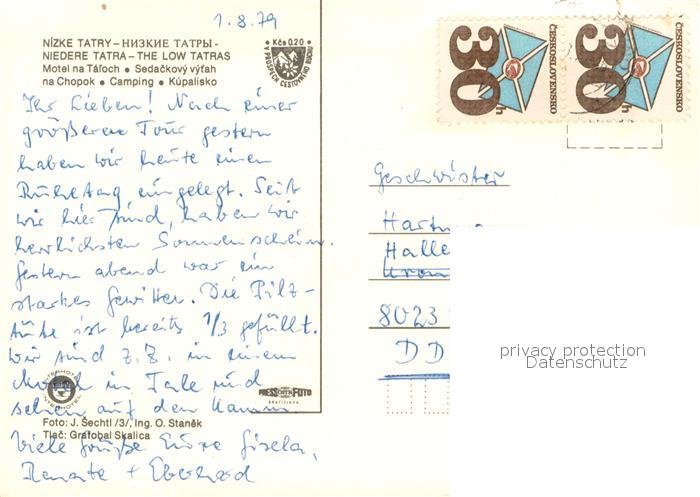 1.8.79
NÍZKE TATRY – НИЗКИЕ ТАТРЫ -
NIEDERE TATRA – THE LOW TATRAS
Motel na Táľoch • Sedačkový výťah
na Chopok • Camping • Kúpalisko
Kčs 0.20
V PROSPECH CESTOVNÉHO RUCHU
30 h ČESKOSLOVENSKO
30 h ČESKOSLOVENSKO
Ihr Lieben! Nach einer
größeren Tour gestern
haben wir heute einen
Ruhetag eingelegt. Seit
wir hier sind, haben wir
herrlichsten Sonnenschein.
Gestern abend war ein
starkes Gewitter. Die Pilz-
tüte ist bereits 1/3 gefüllt.
Wir sind z.Z. in einem
in Tale und
sehen auf den Kamm
Viele Grüße Eure Gisela,
Renate + Eberhard
INTERHOTEL
INTERHOTEL
PRESSFOTO
BRATISLAVA
Foto: J. Šechtl /3/, Ing. O. Staněk
Tlač: Grafobal Skalica
Geschwister
Hart
Halle
8023
DD
privacy protection
Datenschutz